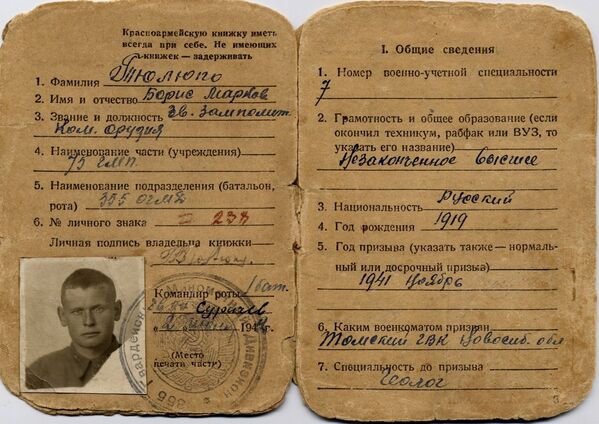 Красноармейскую книжку иметь
всегда при себе. Не имеющих
книжек — задерживать
1. Фамилия Тюлюпо
2. Имя и отчество Борис Марков
3. Звание и должность Зв. Замполит.
Ком. орудия
4. Наименование части (учреждения)
75 гмп.
5. Наименование подразделения (батальон,
рота) 355 огмд
6. № личного знака = 237
Личная подпись владельца книжки
Командир роты 1 бат.
194 г.
(Место
печати части)
I. Общие сведения
1. Номер военно-учетной специальности
7
2. Грамотность и общее образование (если
окончил техникум, рабфак или ВУЗ, то
указать его название)
Незаконченное высшее
3. Национальность Русский
4. Год рождения 1919
5. Год призыва (указать также — нормаль-
ный или досрочный призыв)
1941 Ноябрь
6. Каким военкоматом призван
Томский ГВК Новосиб. обл
7. Специальность до призыва
Геолог
3